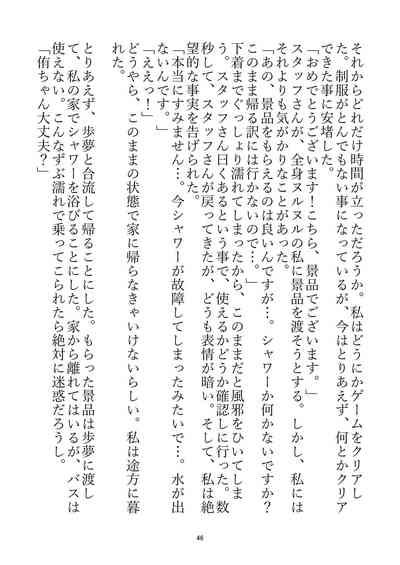 それからどれだけ時間が立っただろうか。私はどうにかゲームをクリアし
た。制服がとんでもない事になっているが、今はとりあえず、何とかクリア
できた事に安堵した。
「おめでとうございます！こちら、景品でございます。」
スタッフさんが、全身ヌルヌルの私に景品を渡そうとする。しかし、私には
それよりも気がかりなことがあった。
「あの、景品をもらえるのは良いんですが…。シャワーか何かないですか？
このまま帰る訳には行かないので…。」
下着までぐっしょり濡れてしまったから、このままだと風邪をひいてしま
う。スタッフさん曰くあるという事で、使えるかどうか確認しに行った。数
秒して、スタッフさんが戻ってきたが、どうも表情が暗い。そして、私は絶
望的な事実を告げられた。
「本当にすみません…。今シャワーが故障してしまったみたいで…。水が出
ないんです。」
「ええっ！」
どうやら、このままの状態で家に帰らなきゃいけないらしい。私は途方に暮
れた。
とりあえず、歩夢と合流して帰ることにした。もらった景品は歩夢に渡し
て、私の家でシャワーを浴びることにした。家から離れてはいるが、バスは
使えない。こんなずぶ濡れで乗ってこられたら絶対に迷惑だろうし。
「侑ちゃん大丈夫？」
46